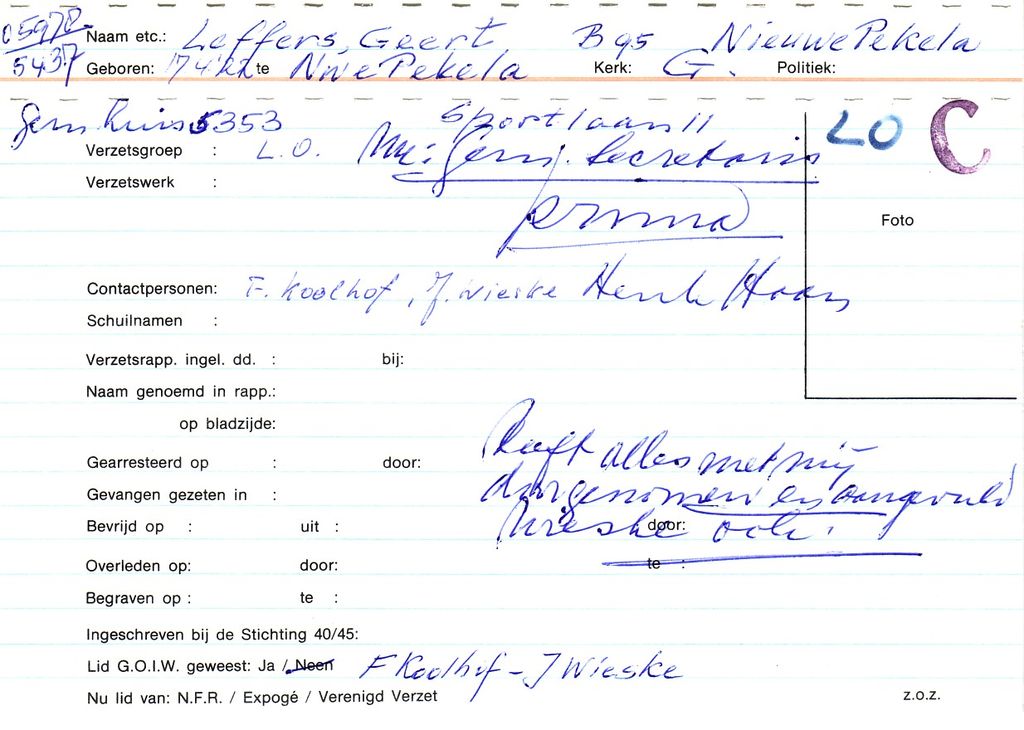 05978 Naam etc.: Leffers, Geert, B 95 Nieuwe Pekela
5437 Geboren: te Nwe Pekela Kerk: G. Politiek:
5353 Sportlaan 11 LO C
Verzetsgroep : L.O. Secretaris
Verzetswerk :
Foto
Contactpersonen: F. Koolhof, J. Wieske Henk Haan
Schuilnamen :
Verzetsrapp. ingel. dd. : bij:
Naam genoemd in rapp.:
op bladzijde:
Heeft alles met mij
Gearresteerd op : door:
doorgenomen en aangevuld
Gevangen gezeten in :
Wieske ook.
Bevrijd op : uit : door:
Overleden op: door: te :
Begraven op : te :
Ingeschreven bij de Stichting 40/45:
Lid G.O.I.W. geweest: Ja / Neen F Koolhof - J Wieske
Nu lid van: N.F.R. / Expogé / Verenigd Verzet z.o.z.